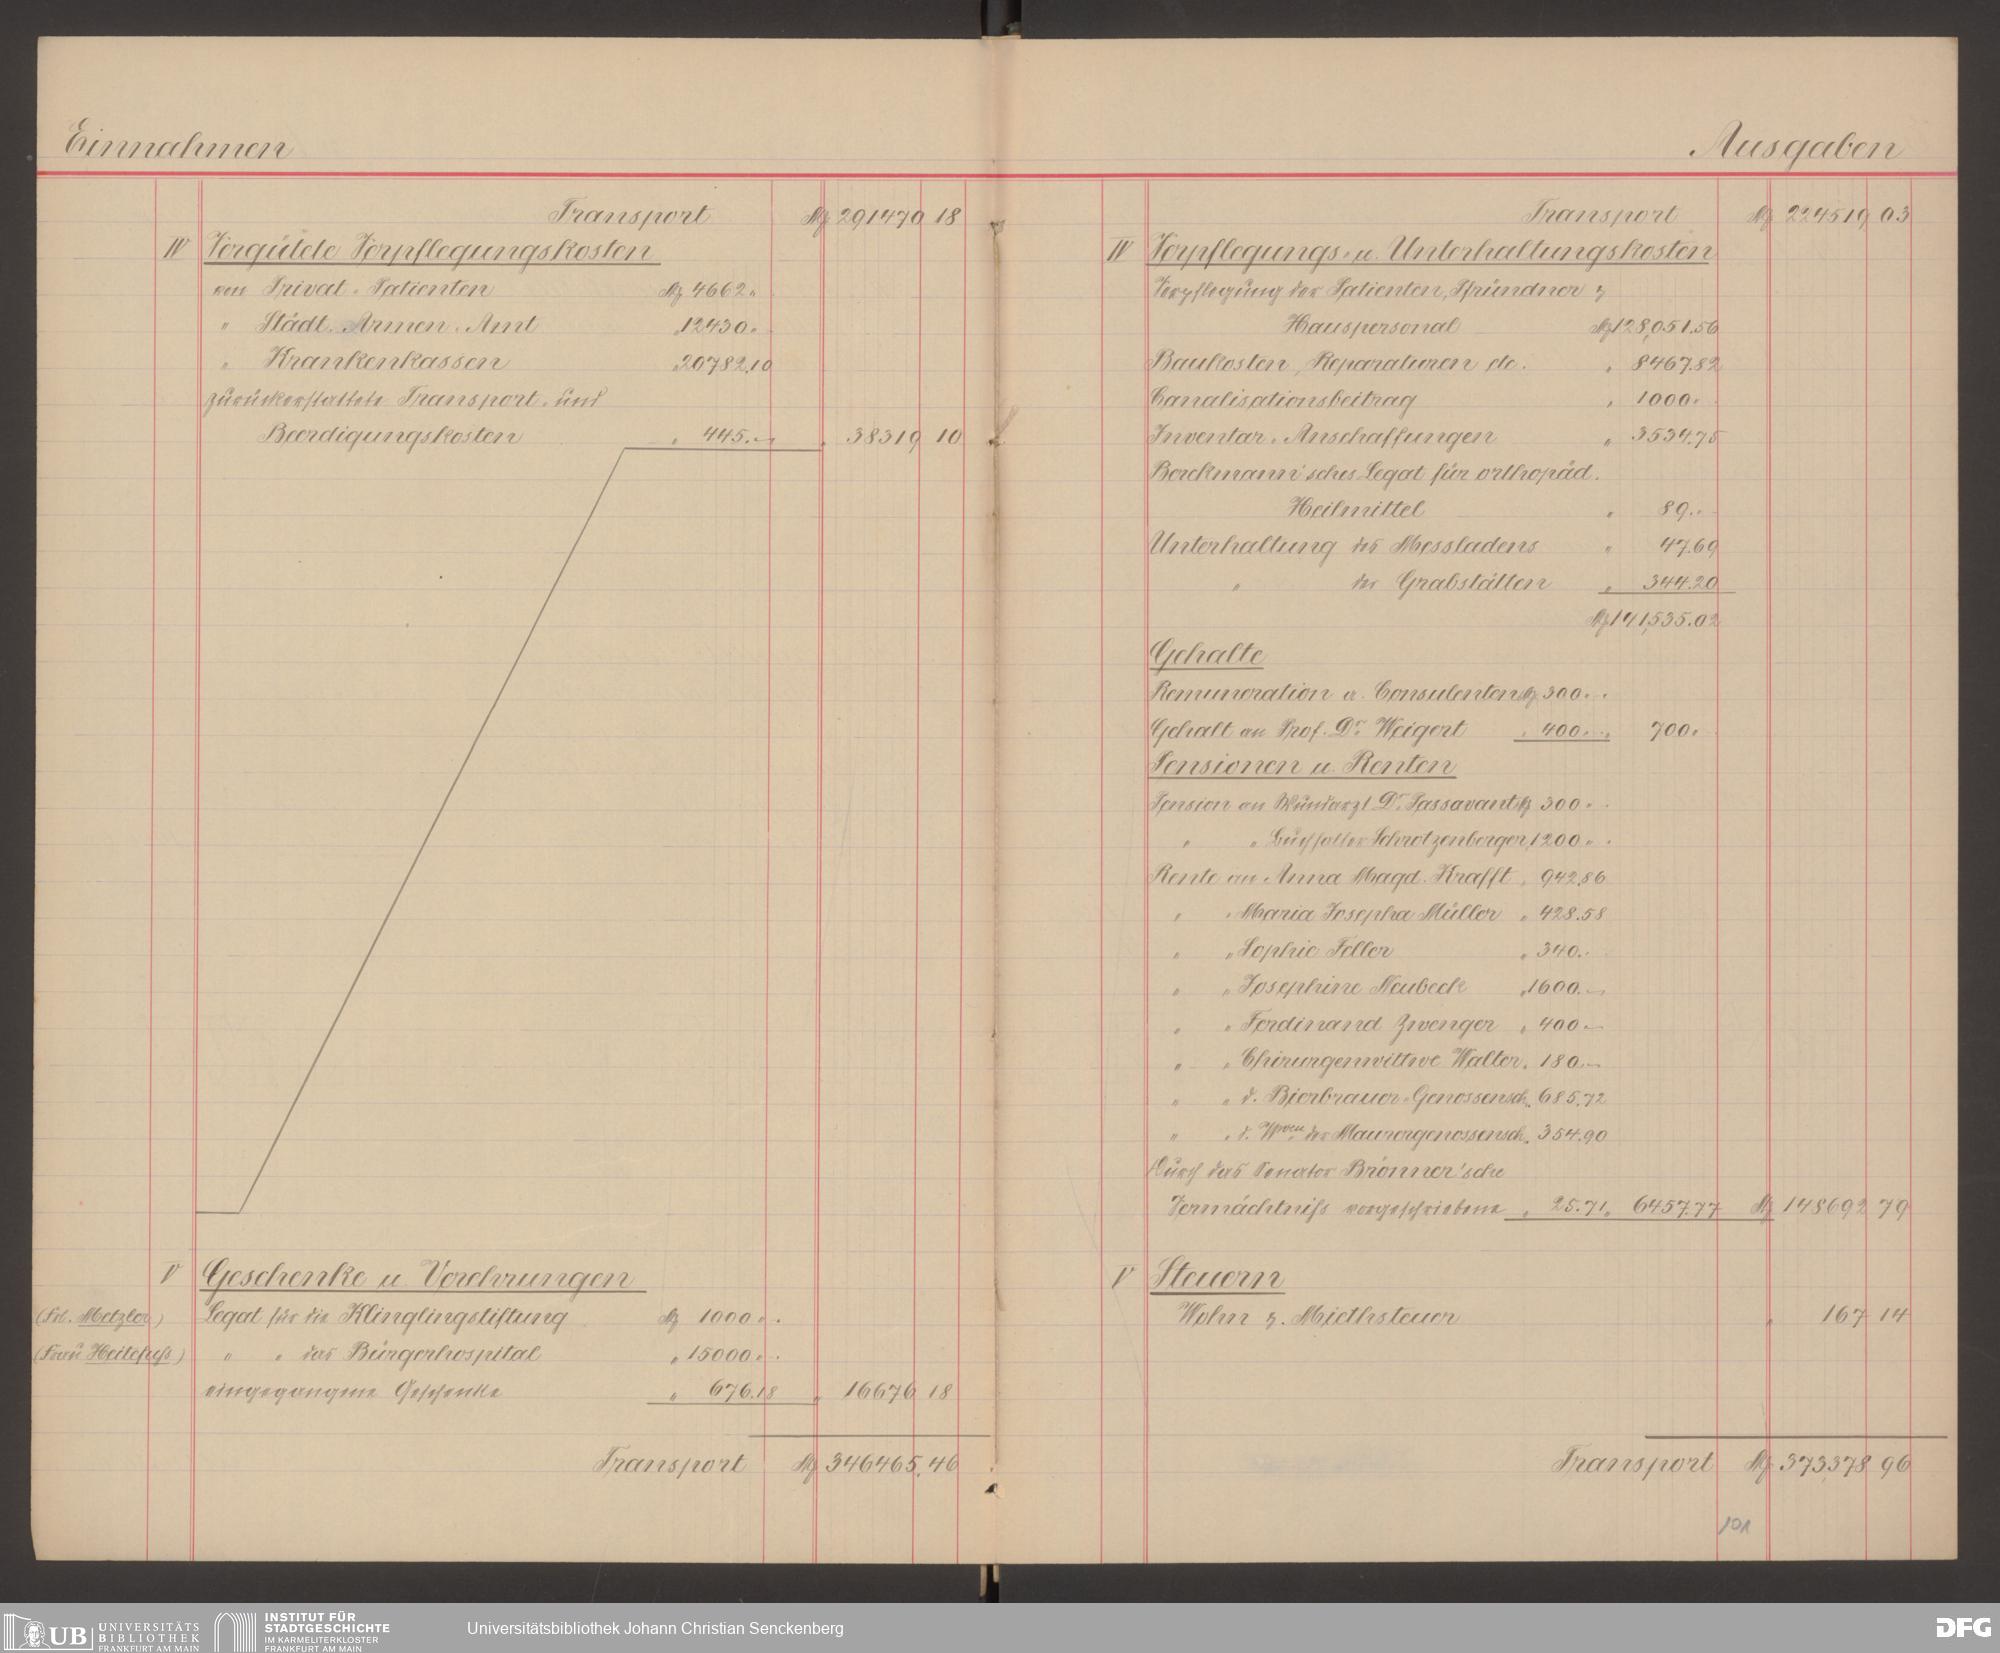 Einnahmen
Transport M 291470 18
IV Vergütete Verpflegungskosten
von Privat-Patienten M 4662 "
" Städt. Armen-Amt " 12430 "
" Krankenkassen " 20782.10
zurückerstattete Transport- und
Beerdigungskosten " 445.— " 38319 10
V Geschenke u. Verehrungen
(Frl. Metzler) Legat für die Klinglingstiftung M 1000 " "
(Frau Heitefuss) " " das Bürgerhospital " 15000 " "
eingegangene Geschenke " 676.18 " 16676 18
Transport M 346465.46
Ausgaben
Transport M 224519 03
IV Verpflegungs- u. Unterhaltungskosten
Verpflegung der Patienten, Pfründner &
Hauspersonal M 128,051.56
Baukosten, Reparaturen etc. " 8467.82
Canalisationsbeitrag " 1000 "
Inventar-Anschaffungen " 3534.75
Berckmann'sches Legat für orthopäd.
Heilmittel " 89. "
Unterhaltung des Messladens " 47.69
" der Grabstätten " 344.20
M 141,535.02
Gehalte
Remuneration a. Consulenten M 300. "
Gehalt an Prof. Dr. Weigert " 400. " " 700 "
Pensionen u. Renten
Pension an Wundarzt Dr. Passavant M 300 "
" " Buchhalter Schrotzenberger " 1200 "
Rente an Anna Magd. Krafft " 942.86
" " Maria Josepha Müller " 428.58
" " Sophie Feller " 340. "
" " Josephine Neubeck " 1600.—
" " Ferdinand Zwenger " 400—
" " Chirurgenwittwe Walter " 180.—
" " d. Bierbrauer-Genossensch. " 685.72
" " d. Wwen der Maurergenossensch. " 354.90
Durch das Senator Brönner'sche
Vermächtniss vorgeschriebene " 25.71 " 6457.77 M 148692 79
V Steuern
Wohn & Miethsteuer " 167 14
Transport M 373,378 96
101
UB UNIVERSITÄTS
BIBLIOTHEK
FRANKFURT AM MAIN
INSTITUT FÜR
STADTGESCHICHTE
IM KARMELITERKLOSTER
FRANKFURT AM MAIN
Universitätsbibliothek Johann Christian Senckenberg
DFG